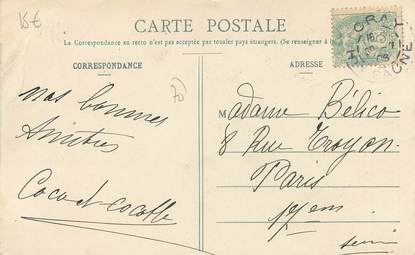 15€
CARTE POSTALE
La Correspondance au recto n'est pas acceptée par tous les pays étrangers. (Se renseigner
CORRESPONDANCE
ADRESSE
nos bonnes
Amitiés
Coco et cocotte
70
Madame Bélico
8 Rue Troyon
Paris
17em
Seine